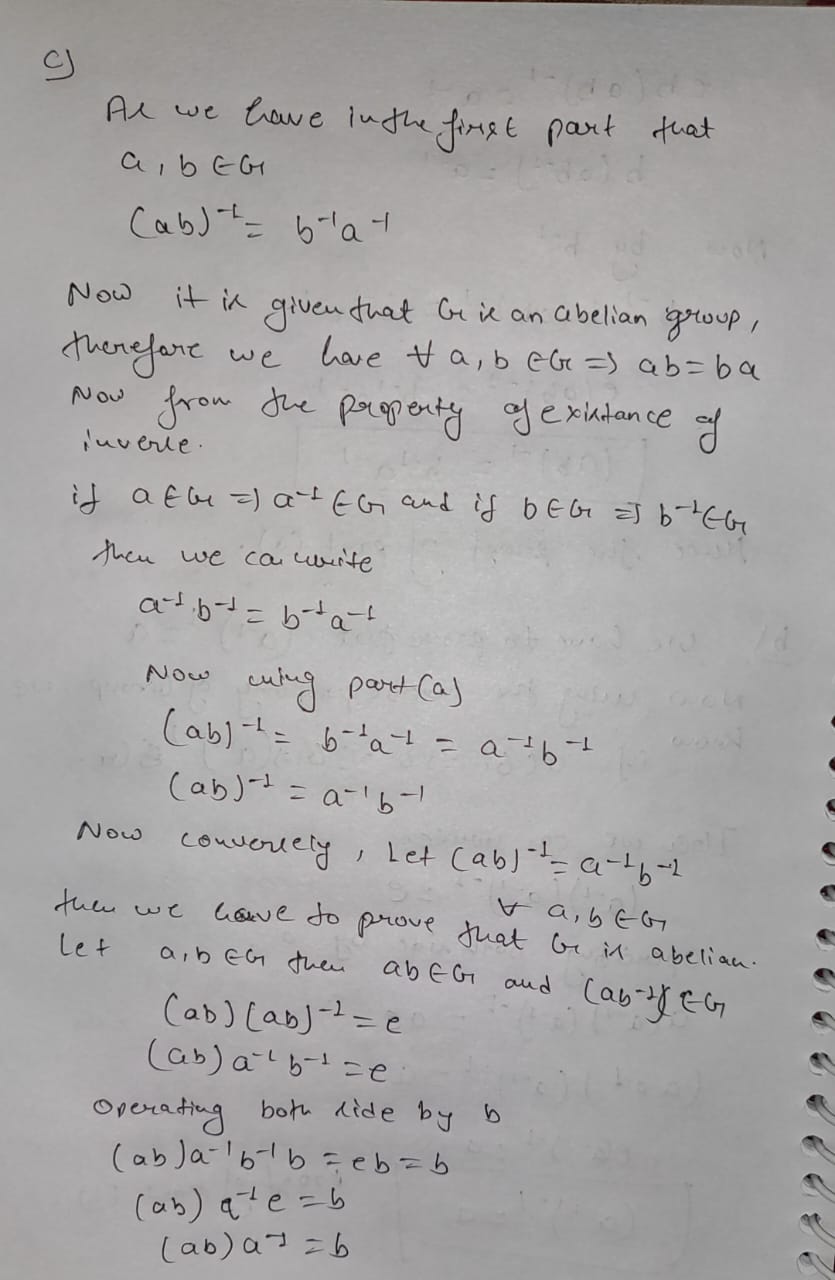 c)
As we have in the first part that
a, b ∈ G
(ab)⁻¹ = b⁻¹a⁻¹
Now it is given that G is an abelian group,
therefore we have ∀ a, b ∈ G ⇒ ab = ba
Now from the property of existance of
inverse.
if a ∈ G ⇒ a⁻¹ ∈ G and if b ∈ G ⇒ b⁻¹ ∈ G
then we ca write
a⁻¹.b⁻¹ = b⁻¹a⁻¹
Now using part (a)
(ab)⁻¹ = b⁻¹a⁻¹ = a⁻¹b⁻¹
(ab)⁻¹ = a⁻¹b⁻¹
Now conversely, Let (ab)⁻¹ = a⁻¹b⁻¹
∀ a, b ∈ G
then we have to prove that G is abelian.
Let a, b ∈ G then ab ∈ G and (ab⁻¹) ∈ G
(ab)(ab)⁻¹ = e
(ab)a⁻¹b⁻¹ = e
Operating both side by b
(ab)a⁻¹b⁻¹b = eb = b
(ab) a⁻¹e = b
(ab)a⁻¹ = b